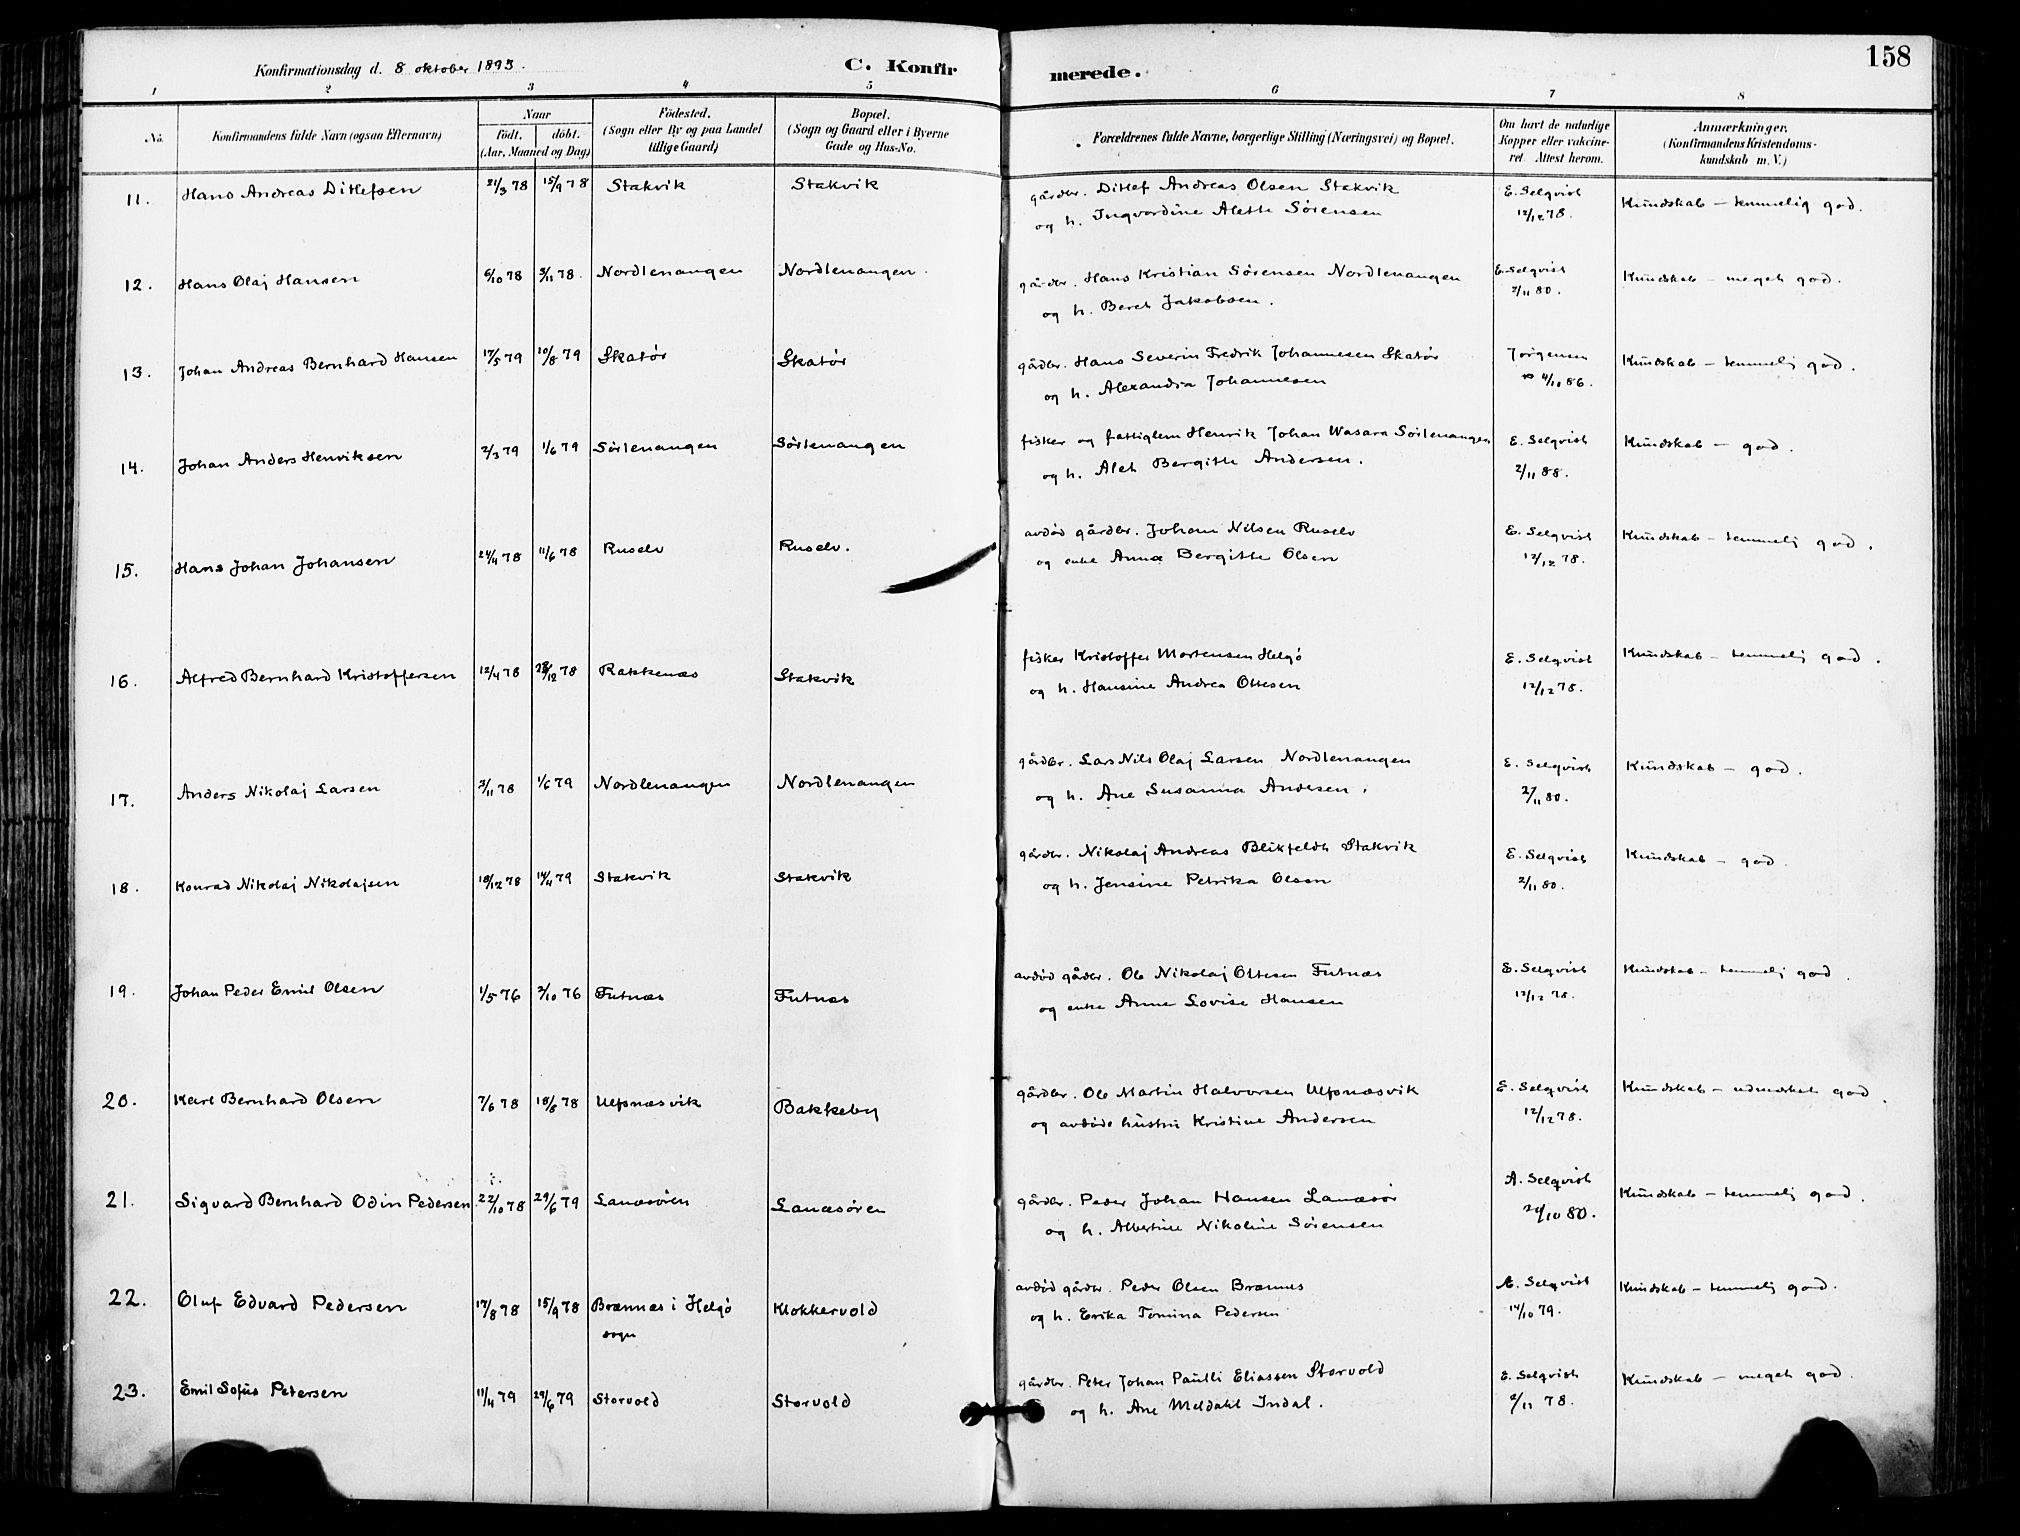 158
Konfirmationsdag d. 8 oktober 1893. C. Konfirmerede.
1 2 3 4 5 6 7 8
No. Konfirmandens fulde Navn (ogsaa Efternavn) Naar födt. döbt. (Aar, Maaned og Dag) Födested. (Sogn eller By og paa Landet tillige Gaard) Bopæl. (Sogn og Gaard eller i Byerne Gade og Hus-No. Forældrenes fulde Navne, borgerlige Stilling (Næringsvei) og Bopæl. Om havt de naturlige Kopper eller vakcineret. Attest herom. Anmærkninger. (Konfirmandens Kristendomskundskab m. V.)
11. Hans Andreas Ditlefsen 21/3 78 15/9 78 Stakvik Stakvik gårdbr. Ditlef Andreas Olsen Stakvik E. Selqvist Kundskab – temmelig god.
og h. Ingvardine Alette Sørensen 12/12 78.
12. Hans Olaj Hansen 6/10 78 3/11 78. Nordlenangen Nordlenangen. gårdbr. Hans Kristian Sørensen Nordlenangen E. Selqvist Kundskab – meget god.
og h. Beret Jakobsen. 2/11 80.
13. Johan Andreas Bernhard Hansen 17/5 79 10/8 79 Skatør Skatør gårdbr. Hans Severin Fredrik Johannesen Skatør Jørgensen Kundskab – temmelig god.
og h. Alexandra Johannesen 4/10 86.
14. Johan Anders Henriksen 2/3 79 1/6 79 Sørlenangen Sørlenangen fisker og fattiglem Henrik Johan Wasara Sørlenangen E. Selqvist Kundskab – god.
og h. Alet Bergitte Andersen. 2/11 88.
15. Hans Johan Johansen 24/4 78 11/6 78 Ruselv Ruselv. avdød gårdbr. Johan Nilsen Ruselv E. Selqvist Kundskab – temmelig god.
og enke Anna Bergitte Olsen 12/12 78.
16. Alfred Bernhard Kristoffersen 12/4 78 28/12 78 Rakkenæs Stakvik fisker Kristoffer Mortensen Helgö E. Selqvist Kundskab – temmelig god.
og h. Hansine Andrea Ottesen 12/12 78.
17. Anders Nikolaj Larsen 3/11 78 1/6 79 Nordlenangen Nordlenangen gårdbr. Lars Nils Olaj Larsen Nordlenangen E. Selqvist Kundskab – god.
og h. Ane Susanna Andersen. 2/11 80.
18. Konrad Nikolaj Nikolajsen 18/12 78 14/4 79 Stakvik Stakvik gårdbr. Nikolaj Andreas Blikfeldt Stakvik E. Selqvist Kundskab – god.
og h. Jensine Petrika Olsen 2/11 80.
19. Johan Peder Emil Olsen 1/5 76 2/10 76 Futnæs Futnæs avdød gårdbr. Ole Nikolaj Ottesen Futnæs E. Selqvist Kundskab – temmelig god.
og enke Anne Lovise Hansen 12/12 78.
20. Karl Bernhard Olsen 7/6 78 18/8 78 Ulfsnæsvik Bakkeby gårdbr. Ole Martin Halvorsen Ulfsnæsvik E. Selqvist Kundskab – udmærket god.
og avdøde hustru Kristine Andersen 12/12 78.
21. Sigvard Bernhard Odin Pedersen 22/10 78 29/6 79 Lanæsören Lanæsören gårdbr. Peder Johan Hansen Lanæsör A. Selqvist Kundskab – temmelig god.
og h. Albertine Nikoline Sörensen 24/10 80.
22. Oluf Edvard Pedersen 17/8 78 15/9 78 Brænnæs i Helgö Klokkervold avdød gårdbr. Peder Olsen Brænnes A. Selqvist Kundskab – temmelig god.
sogn og h. Erika Tomina Pedersen 14/10 79.
23. Emil Sofus Petersen 11/4 79 29/6 79 Storvold Storvold gårdbr. Peter Johan Paulli Eliassen Storvold E. Selqvist Kundskab – meget god.
og h. Ane Meldahl Indal. 2/11 78.